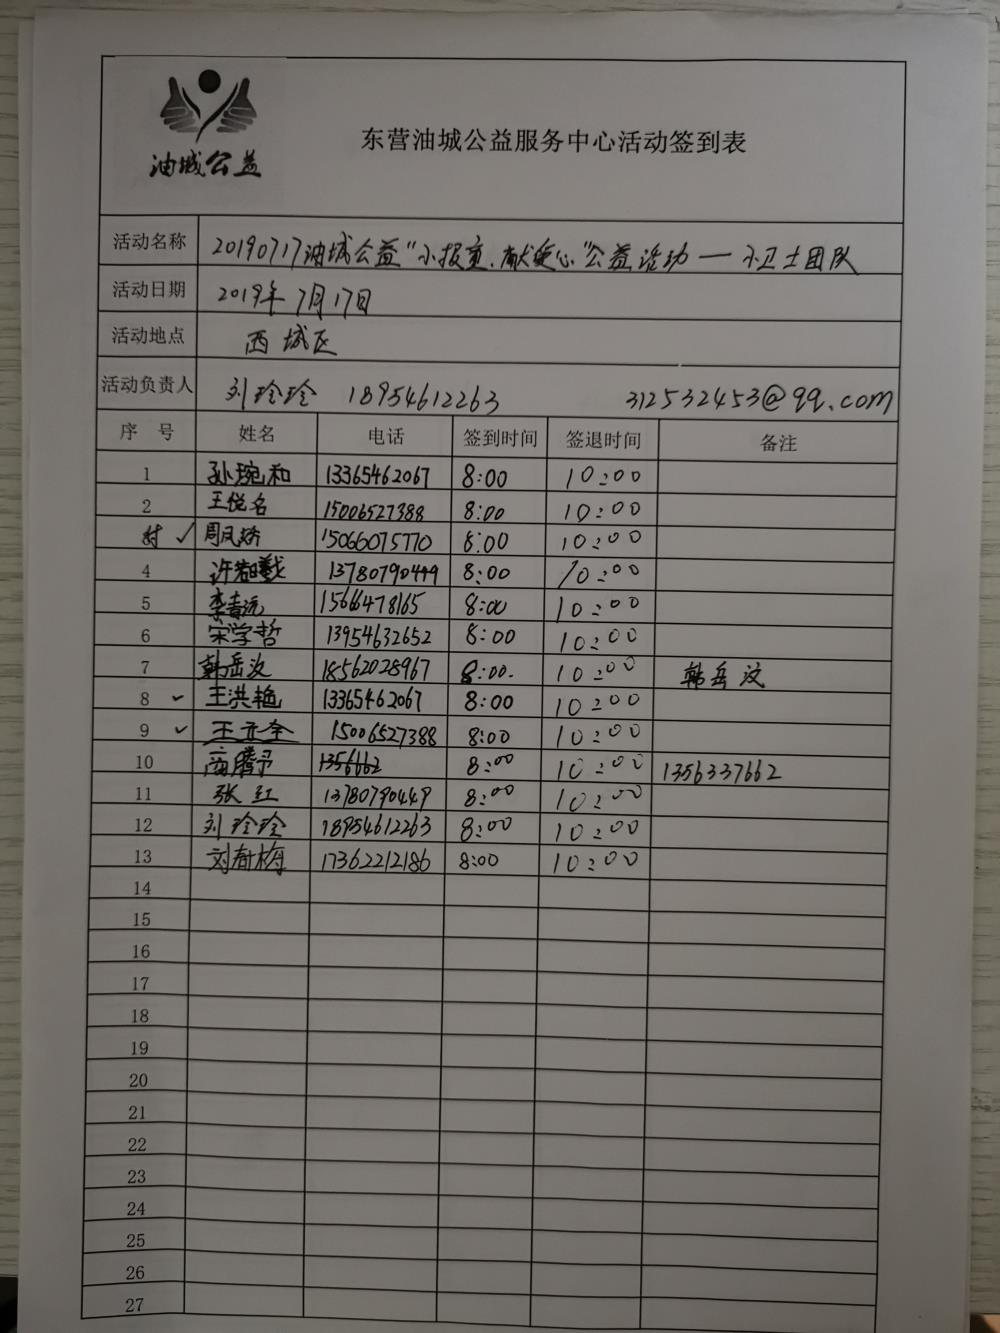 油城公益
东营油城公益服务中心活动签到表
活动名称 20190717油城公益“小报童、献爱心”公益活动—小卫士团队
活动日期 2019年7月17日
活动地点 西城区
活动负责人 刘玲玲 18954612263 312532453@qq.com
序号 姓名 电话 签到时间 签退时间 备注
1 孙琬和 13365462067 8:00 10:00
2 王悦名 15006527388 8:00 10:00
✓ 周凤娇 15066075770 8:00 10:00
4 许曦 13780790449 8:00 10:00
5 李青远 8:00 10:00
6 宋学哲 13954632652 8:00 10:00
7 韩岳汶 18562028967 8:00. 10:00 韩岳汶
8 ✓ 王洪艳 13365462067 8:00 10:00
9 ✓ 王立全 15006527388 8:00 10:00
10 商腾予 1356662 8:00 10:00 13563337662
11 张红 13780790449 8:00 10:00
12 刘玲玲 18954612263 8:00 10:00
13 刘春梅 17362212186 8:00 10:00
14
15
16
17
18
19
20
21
22
23
24
25
26
27